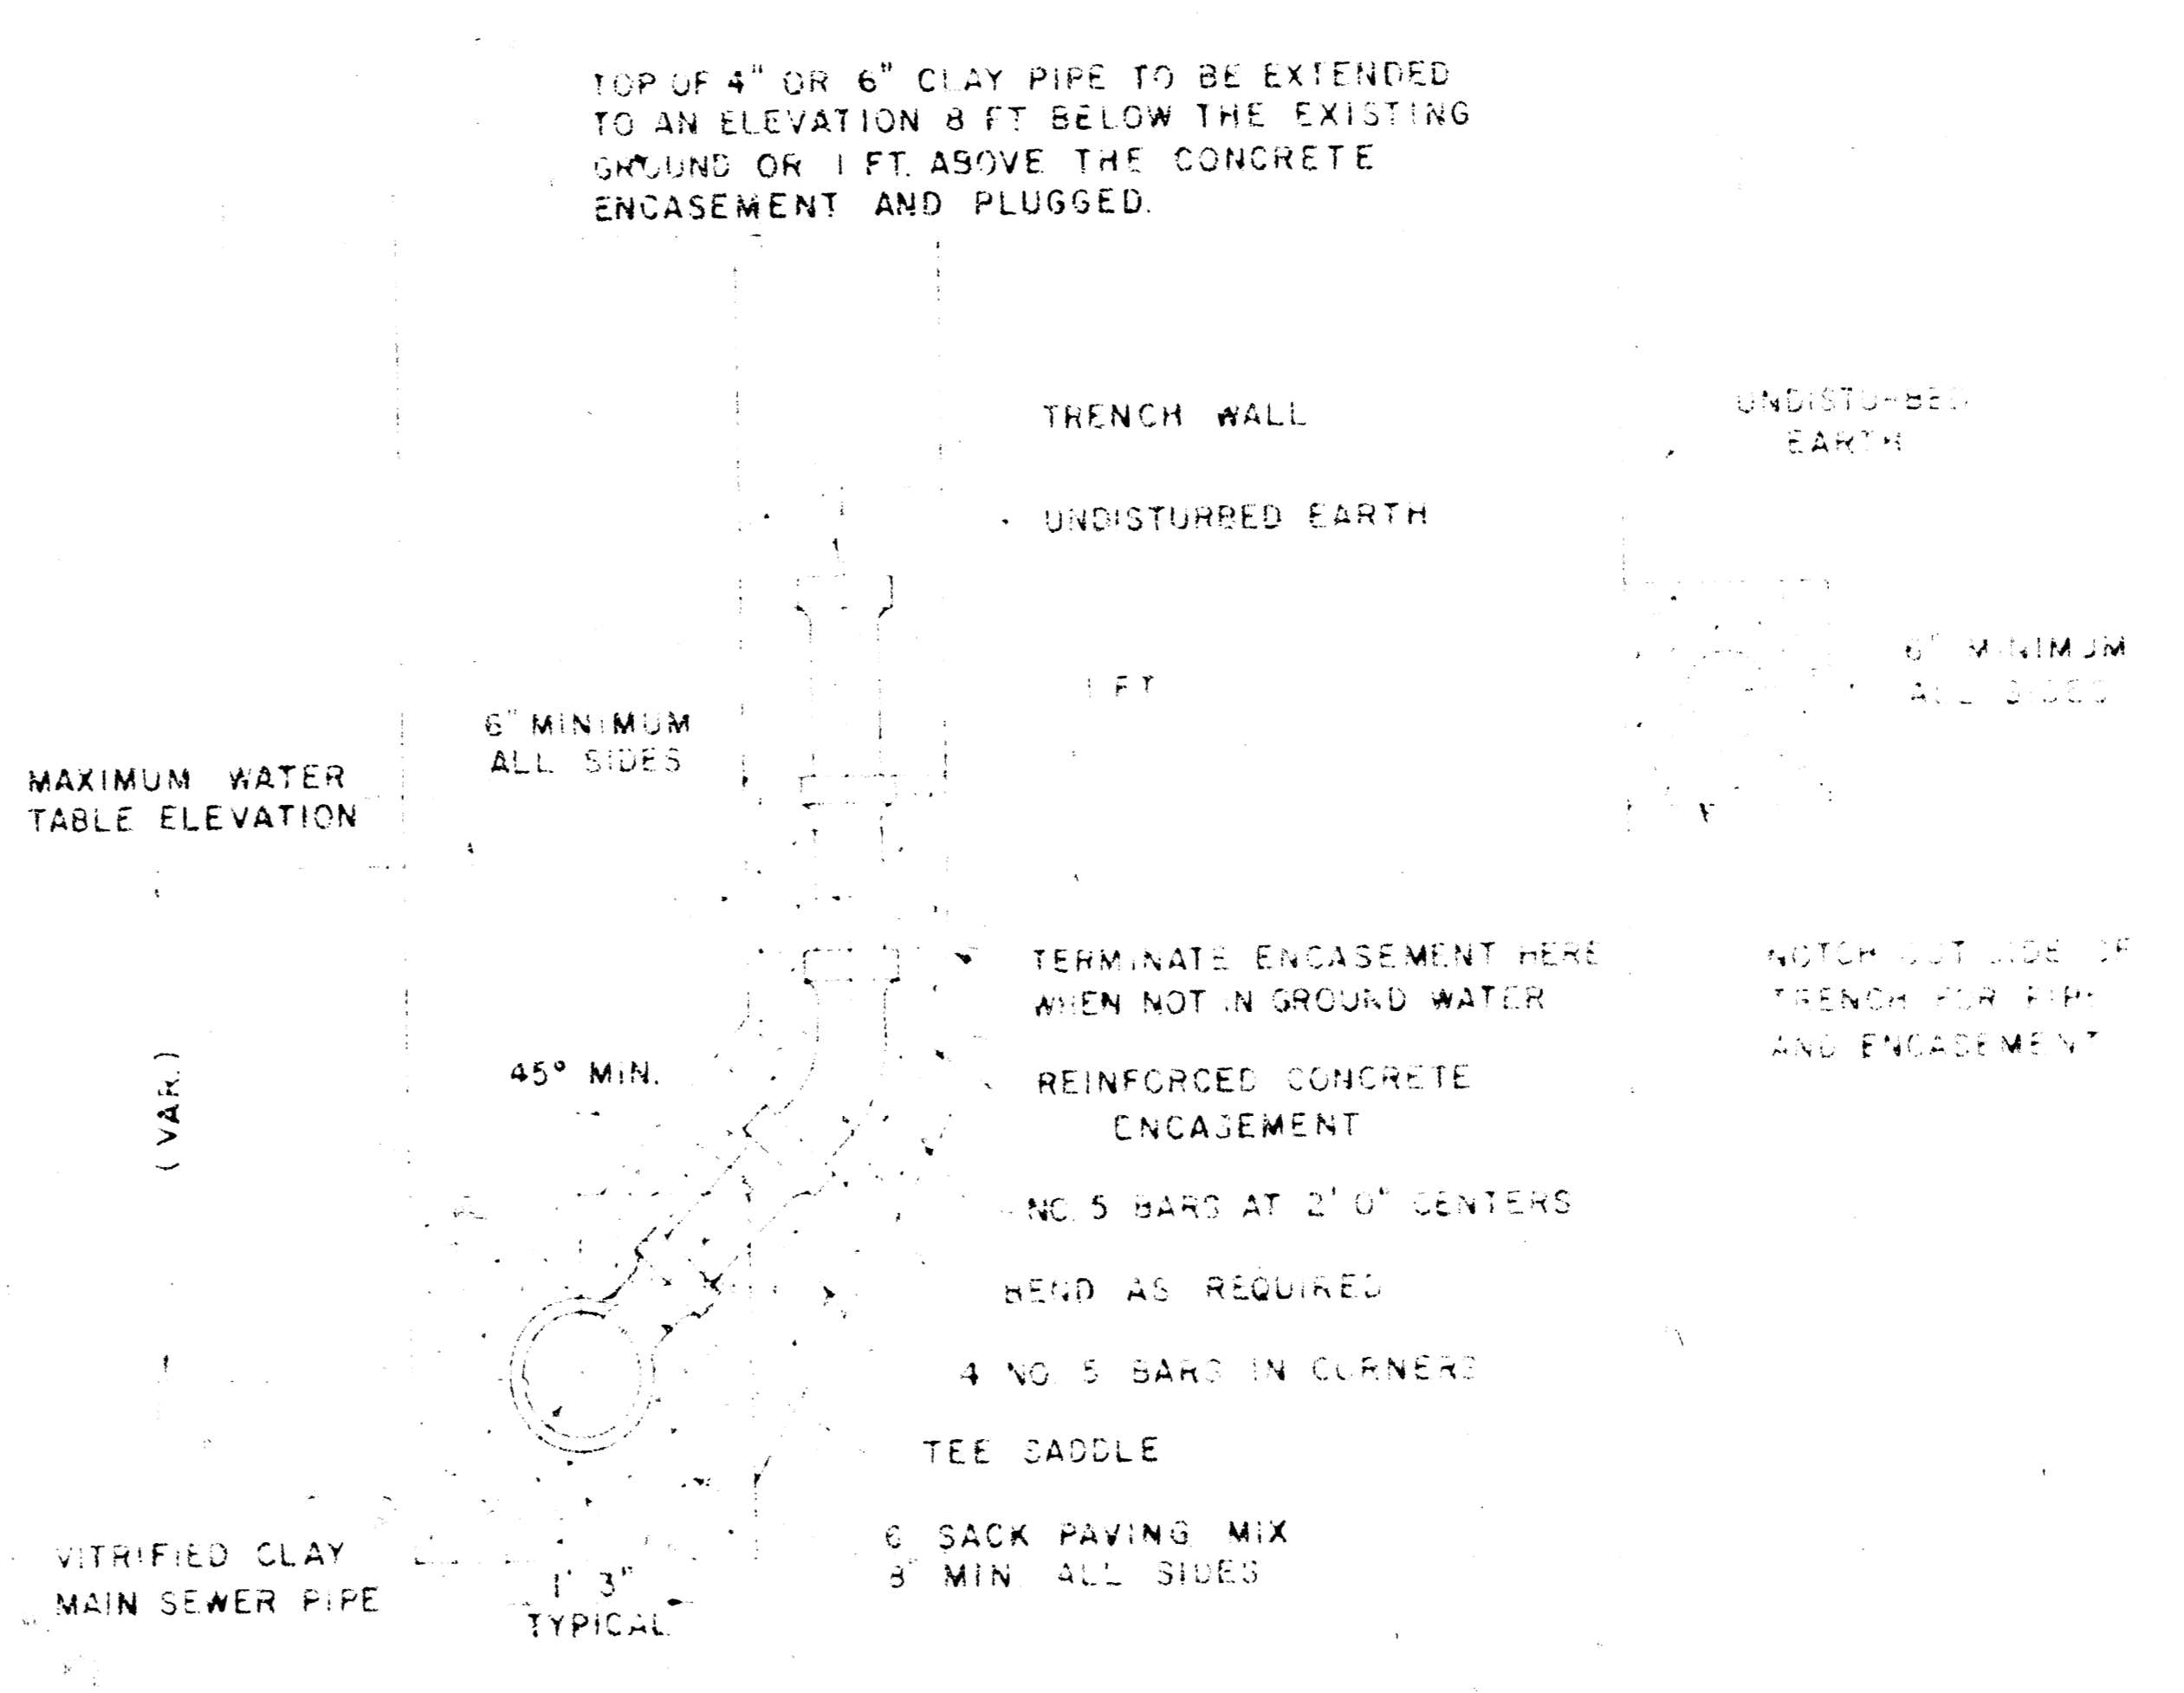 TOP OF 4" OR 6" CLAY PIPE TO BE EXTENDED
TO AN ELEVATION 8 FT BELOW THE EXISTING
GROUND OR 1 FT. ABOVE THE CONCRETE
ENCASEMENT AND PLUGGED.
TRENCH WALL
UNDISTURBED
EARTH
UNDISTURBED EARTH
6" MINIMUM
ALL SIDES
1 FT
6" MINIMUM
ALL SIDES
MAXIMUM WATER
TABLE ELEVATION
TERMINATE ENCASEMENT HERE
WHEN NOT IN GROUND WATER
NOTCH OUT SIDE OF
TRENCH FOR PIPE
AND ENCASEMENT
45° MIN.
(VAR.)
REINFORCED CONCRETE
ENCASEMENT
NO. 5 BARS AT 2' 0" CENTERS
BEND AS REQUIRED
4 NO. 5 BARS IN CORNERS
TEE SADDLE
6 SACK PAVING MIX
8" MIN. ALL SIDES
VITRIFIED CLAY
MAIN SEWER PIPE
1' 3"
TYPICAL